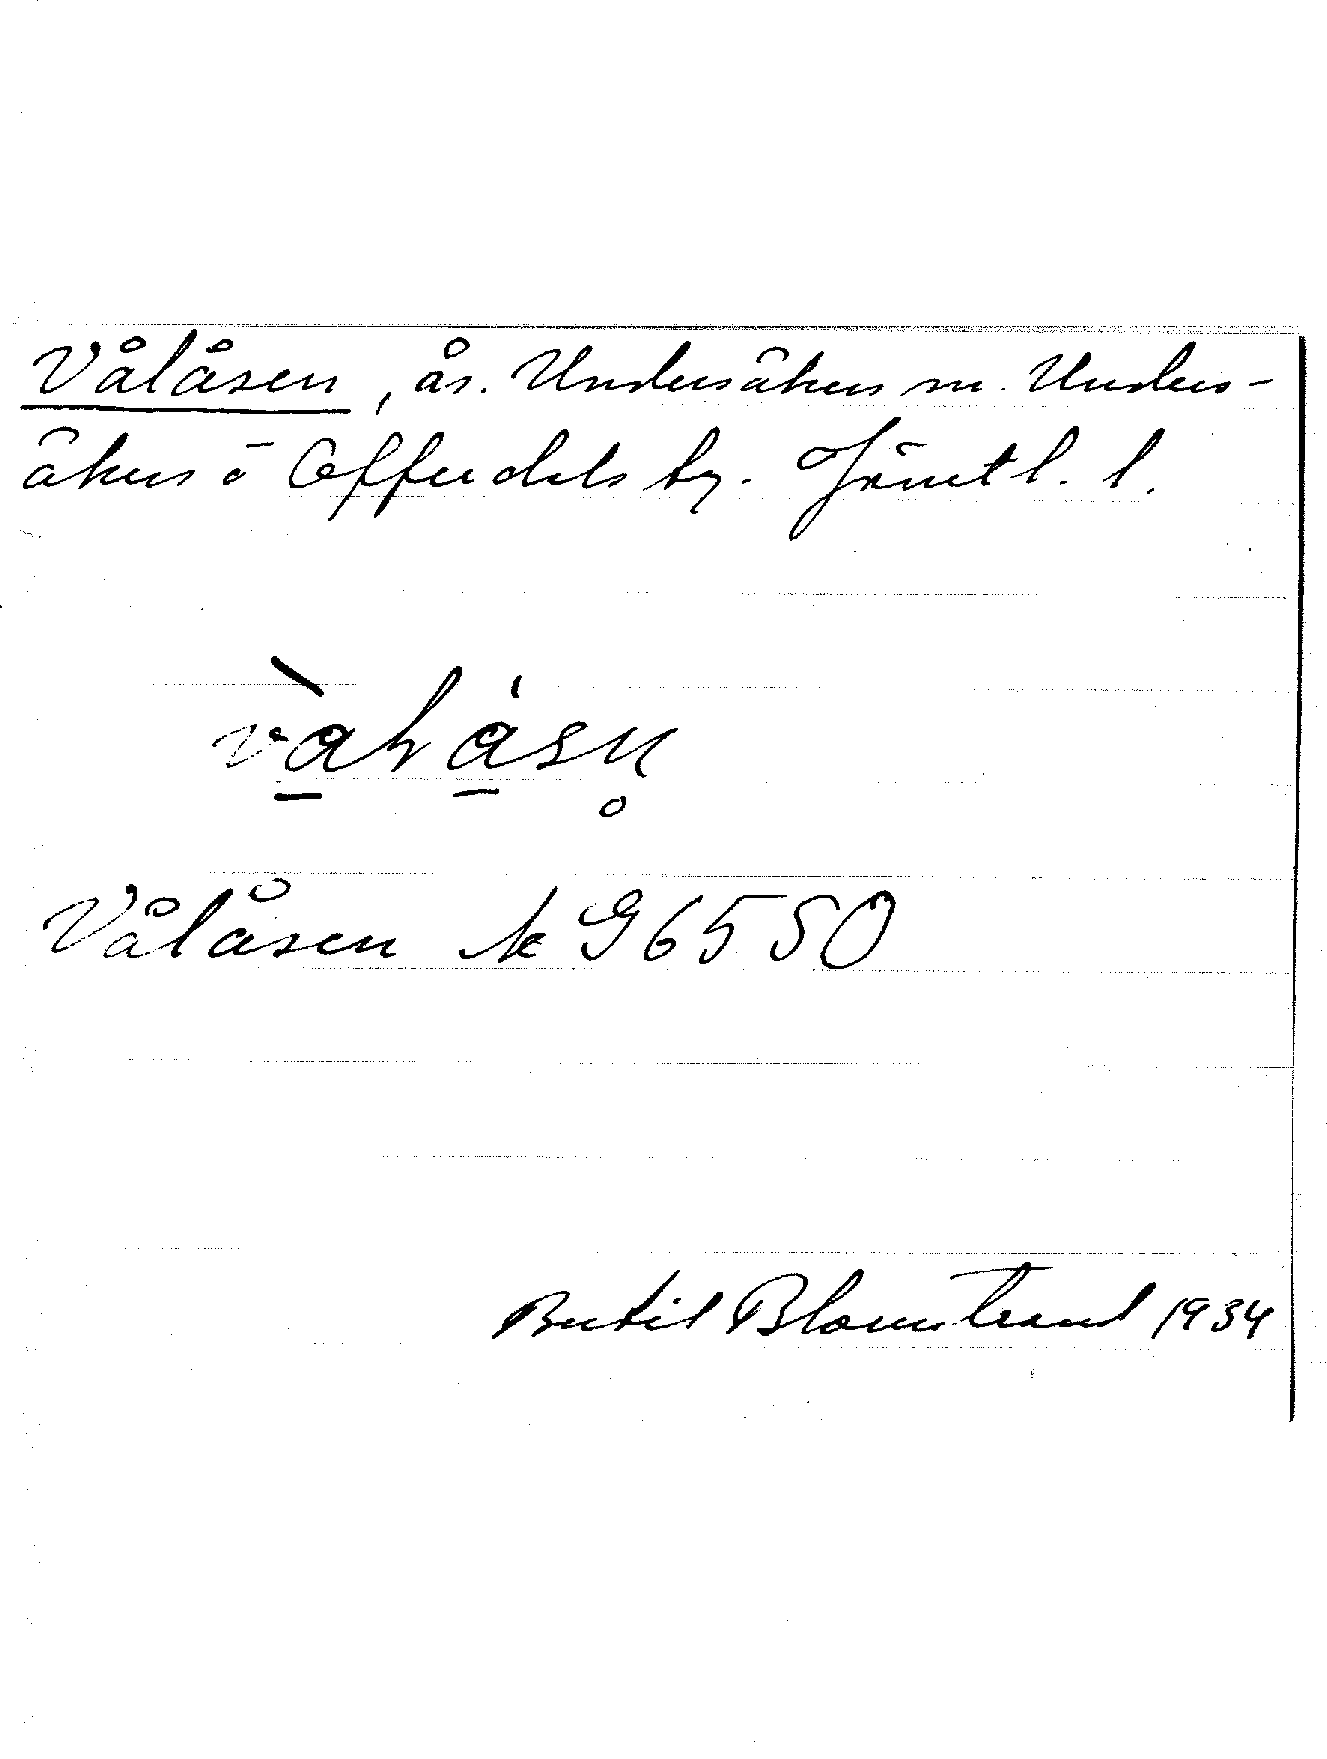 Vålåsen, ås. Undersåkers sn. Unders-
åkers o Offerdals tg. Jämtl. l.
vàlásn̥
Vålåsen Ak G6550
Bertil Blomstrand 1934